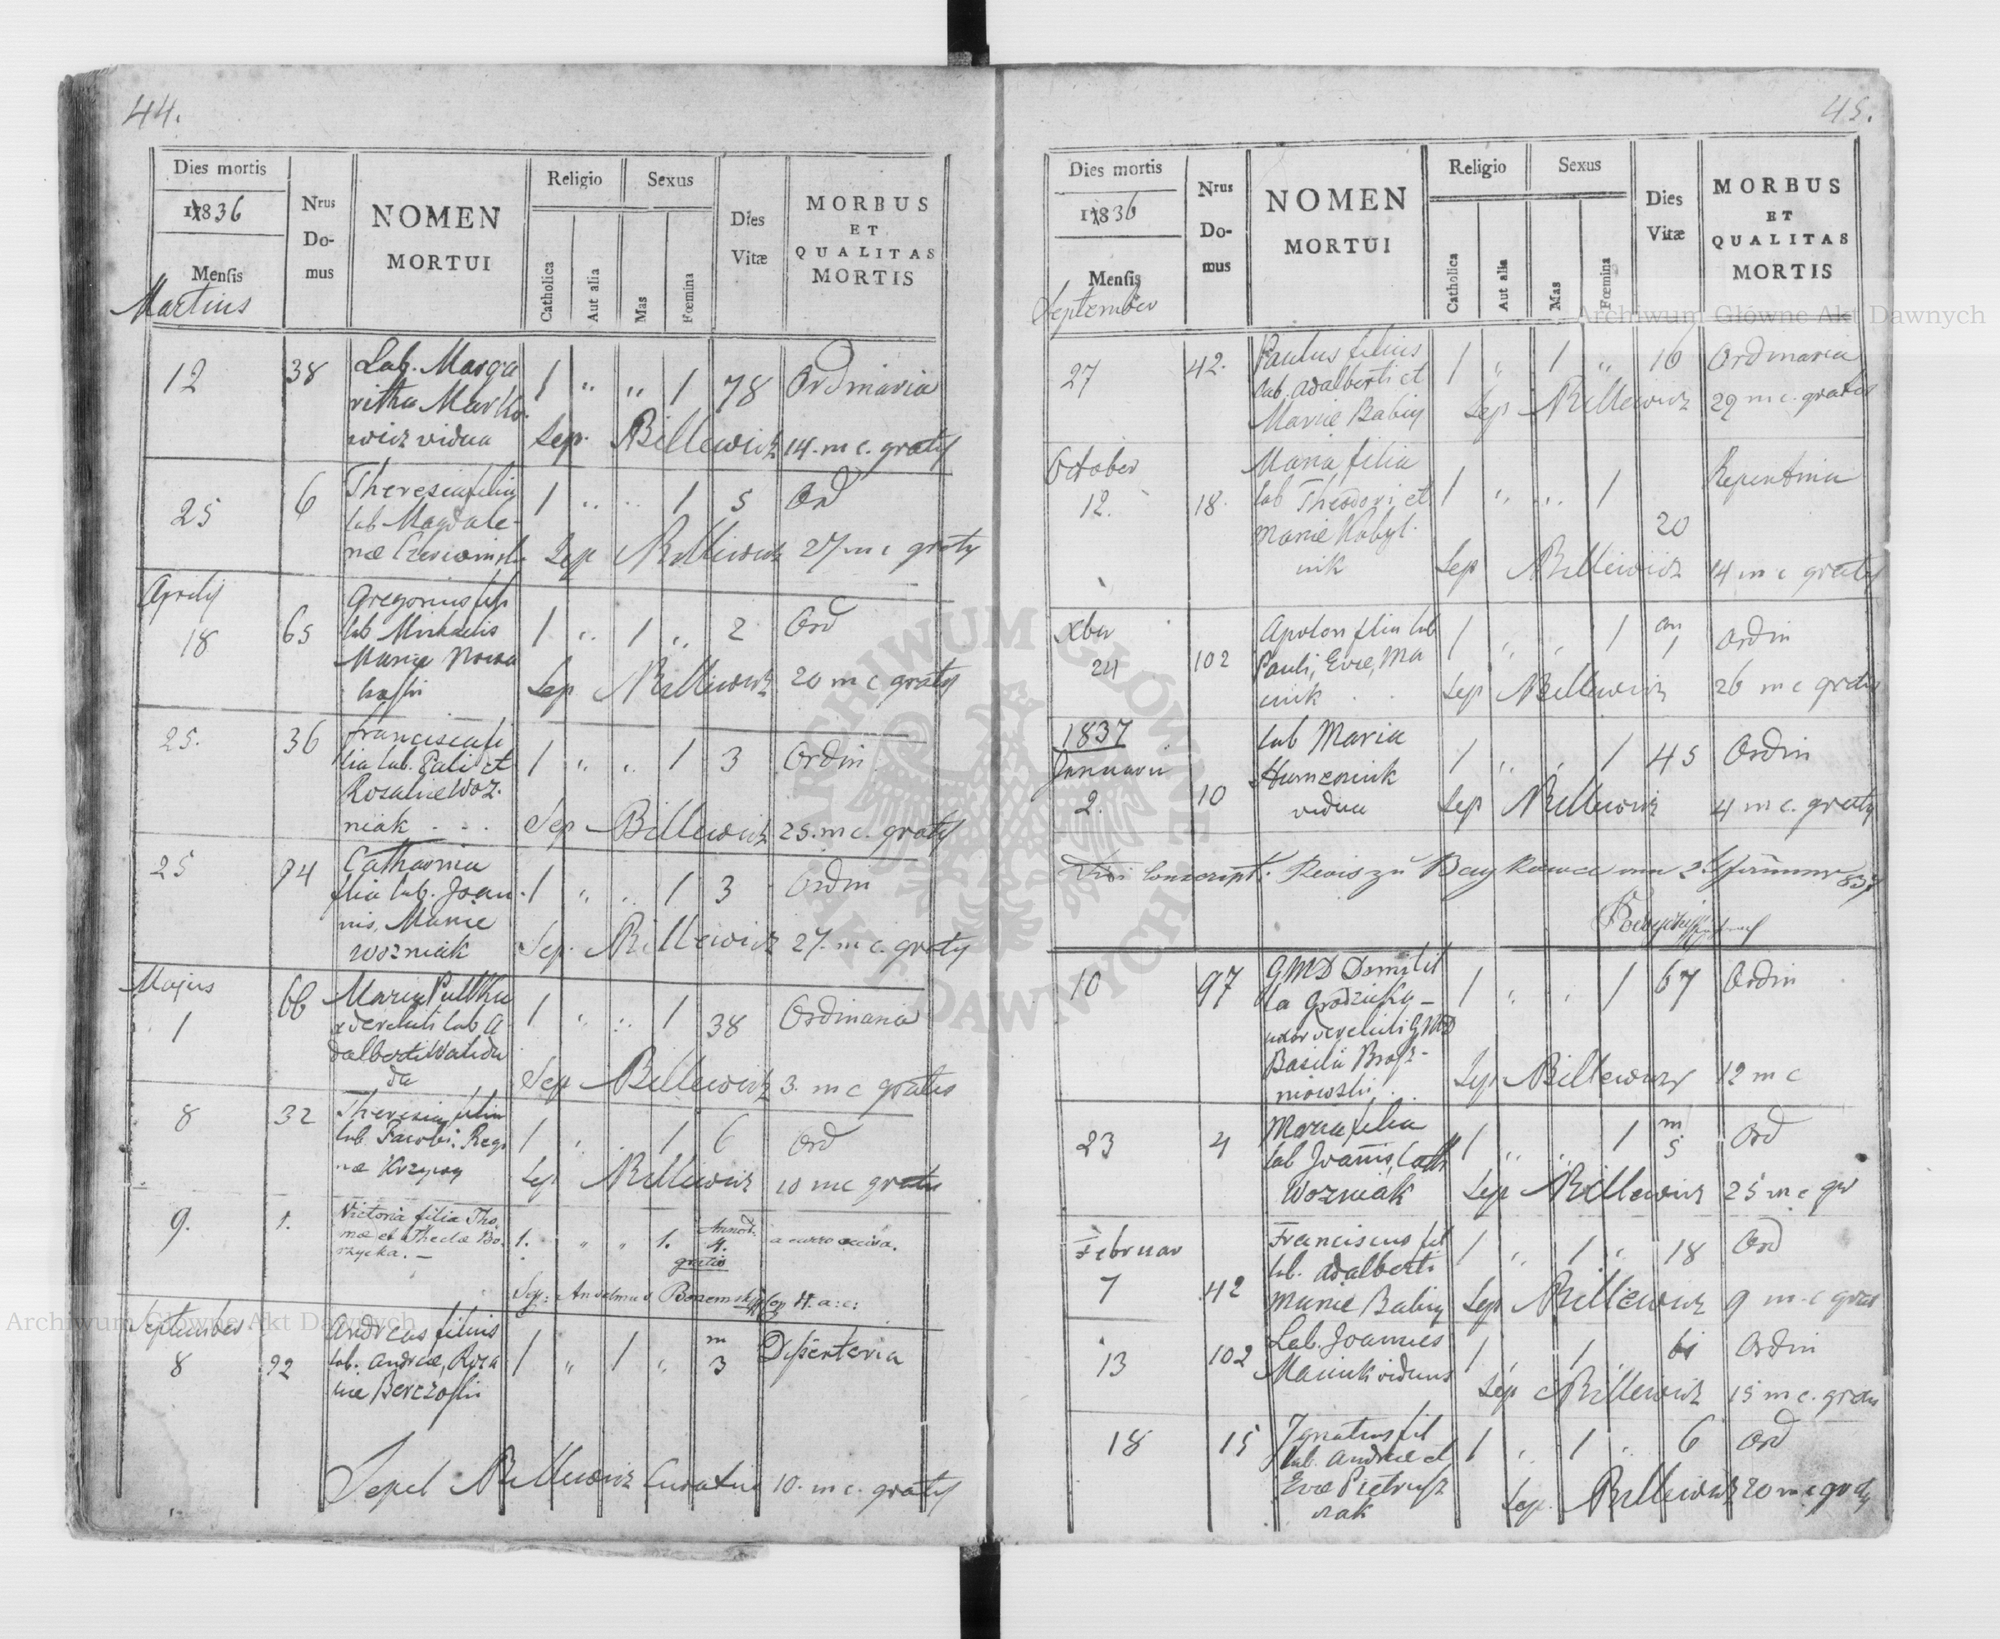 44.
Dies mortis
1836
Mensis
Martius
Nrus
Do-
mus
NOMEN
MORTUI
Religio
Catholica
Aut alia
Sexus
Mas
Fœmina
Dies
Vitæ
MORBUS
ET
QUALITAS
MORTIS
12 38 Lab. Marga
ritha Marko-
wicz vidua
1 " " 1 78 Ordinaria
Sep. Billewicz 14. m c. gratis
25 6 Theresia filia
lab Magdale-
næ
1 " " 1 5 Ord
Sep Billewicz 27 m c gratis
Aprilis
18 65 Gregorius fil
lab Michaelis
Mariæ
1 " 1 " 2 Ord
Sep Billewicz 20 m c gratis
25. 36 Francisca fi
lia lab. et
Rosaliæ Woz-
niak
1 " " 1 3 Ordin
Sep Billewicz 25. m c. gratis
25 94 Catharina
filia lab. Joan-
nis, Mariæ
Wozniak
1 " " 1 3 Ordin
Sep. Billewicz 27. m c. gratis
Majus
1 66 Maria
lab A
dalberti
1 " " 1 38 Ordinaria
Sep Billewicz 3. m c gratis
8 32 Theresia filia
lab. Jacobi, Regi
næ
1 " 1 6 Ord
Sep Billewicz 10 m c gratis
9. 1. Victoria filia Tho-
mæ et Theclæ Bo-
rzycka. –
1. " " 1. 4. a curro occisa.
gratis
Sep: Anselmus
September
8 92 Andreas filius
lab. Andreæ, Rosa
liæ
1 " 1 " m
3 Dissenteria
Sepel Billewicz Curatus 10. m c. gratis
45.
Dies mortis
1836
Mensis
September
Nrus
Do-
mus
NOMEN
MORTUI
Religio
Catholica
Aut alia
Sexus
Mas
Fœmina
Dies
Vitæ
MORBUS
ET
QUALITAS
MORTIS
27 42. Paulus filius
lab. Adalberti et
Mariæ Babiy
1 " 1 " 16 Ordinaria
Sep Billewicz 29 m c. gratis
October
12. 18. Maria filia
lab Theodori et
Mariæ Kobyl-
nik
1 " " 1 20 Repentina
Sep Billewicz 14 m c gratis
Xber
24 102 Apolon filia lab
Pauli, Evæ, Ma
1 " " 1 an
1 Ordin
Sep Billewicz 26 m c gratis
1837
Januarii
2. 10 lab Maria
Humeniuk
vidua
1 " " 1 45 Ordin
Sep Billewicz 4 m c. gratis
10 97 GMD Domicil
la
GMD
Basilii
1 " " 1 67 Ordin
Sep Billewicz 12 m c
23 4 Maria filia
lab Joannis, Cath
Wozniak
1 " " 1 m
5 Ord
Sep Billewicz 25 m c gr
Februar
7 42 Franciscus fil
lab. Adalberti
Mariæ Babiy
1 " 1 " 18 Ord
Sep Billewicz 9 m c gra
13 102 Lab. Joannes
viduus
1 " 1 " Ordin
Sep Billewicz 15 m c. gratis
18 15 Ignatius fil
lab. Andreæ et
Evæ
1 " 1 " 6 Ord
Sep. Billewicz 20 m c gratis
Archiwum Główne Akt Dawnych
Archiwum Główne Akt Dawnych
ARCHIWUM GŁÓWNE AKT DAWNYCH